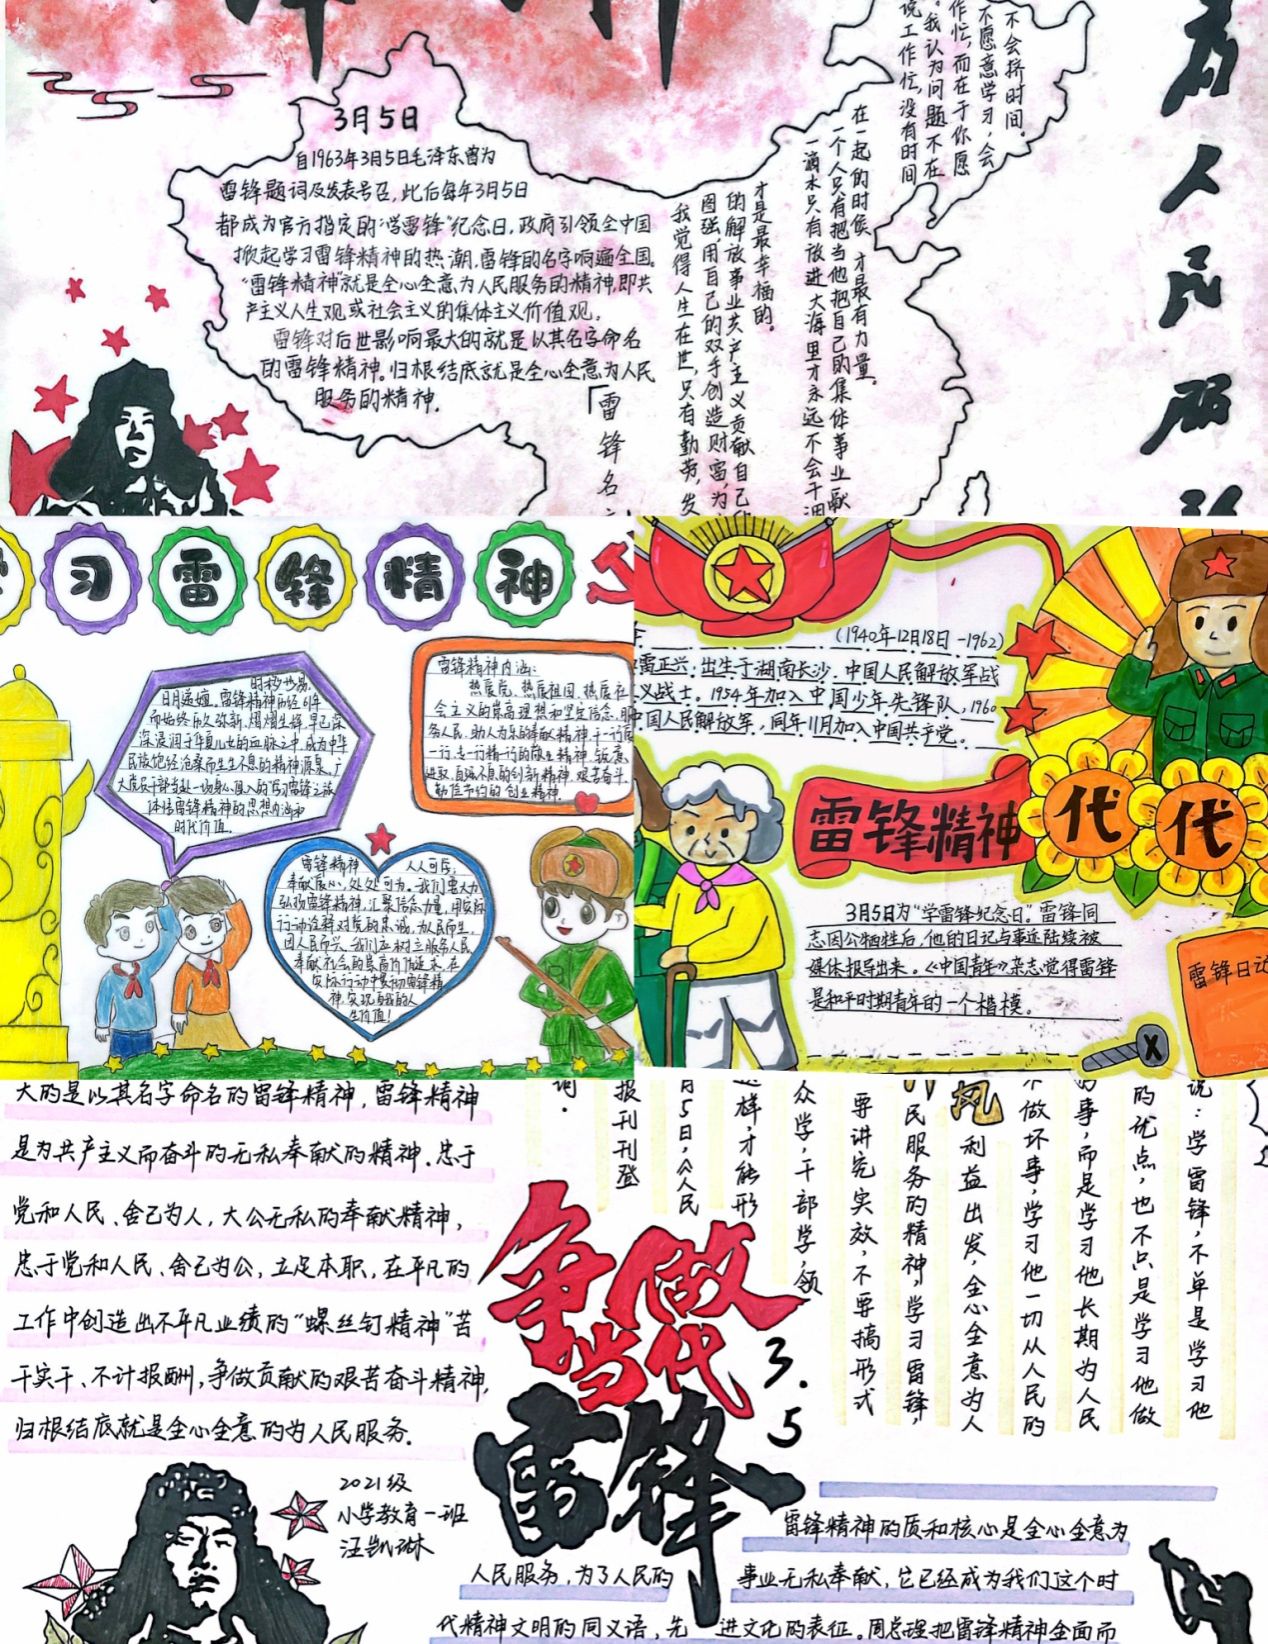 3月5日
自1963年3月5日毛泽东曾为
雷锋题词及发表号召,此后每年3月5日
都成为官方指定的“学雷锋”纪念日,政府引领全中国
掀起学习雷锋精神的热潮,雷锋的名字响遍全国。
“雷锋精神”就是全心全意为人民服务的精神,即共
产主义人生观或社会主义的集体主义价值观。
雷锋对后世影响最大的就是以其名字命名
的雷锋精神。归根结底就是全心全意为人民
服务的精神。
不会挤时间。
不愿意学习,会
作忙,而在于你愿
。我认为问题不在
说工作忙,没有时间
在一起的时候,才最有力量。
一个人只有把当他把自己的集体事业献
一滴水只有放进大海里才永远不会干涸
才是最幸福的。
的解放事业共产主义贡献自己
图强,用自己的双手创造财富,为
我觉得人生在世,只有勤劳,发
「雷锋名
为人民服
习雷锋精神
时移世易,
日月递嬗,雷锋精神历经61年
而始终历久弥新,熠熠生辉,早已深
深浸润于华夏儿女的血脉之中,成为中华
民族饱经沧桑而生生不息的精神源泉。广
大党员干部当赴一场身心浸入的“学习雷锋之旅
体悟雷锋精神的思想内涵和
时代价值。
雷锋精神内涵:
热爱党、热爱祖国、热爱社
会主义的崇高理想和坚定信念,服
务人民、助人为乐的奉献精神,干一行爱
一行、专一行精一行的敬业精神,锐意
进取、自强不息的创新精神,艰苦奋斗、
勤俭节约的创业精神。
雷锋精神 人人可学;
奉献爱心,处处可为。我们要大力
弘扬雷锋精神,汇聚信念力量,用实际
行动诠释对党的忠诚,为人民而生,
因人民而兴。我们应树立服务人民
奉献社会的崇高价值追求,在
实际行动中贯彻雷锋精
神,实现自我的人
生价值!
(1940年12月18日-1962)
雷正兴:出生于湖南长沙,中国人民解放军战
义战士。1954年加入中国少年先锋队,1960
中国人民解放军,同年11月加入中国共产党。
雷锋精神代代
3月5日为“学雷锋纪念日”。雷锋同
志因公牺牲后,他的日记与事迹陆续被
媒体报导出来。《中国青年》杂志觉得雷锋
是和平时期青年的一个楷模。
雷锋日
大的是以其名字命名的雷锋精神,雷锋精神
是为共产主义而奋斗的无私奉献的精神。忠于
党和人民、舍己为人,大公无私的奉献精神,
忠于党和人民、舍己为公,立足本职,在平凡的
工作中创造出不平凡业绩的“螺丝钉精神”苦
干实干、不计报酬,争做贡献的艰苦奋斗精神,
归根结底就是全心全意的为人民服务。
2021级
小学教育一班
说:学雷锋,不单是学习他
的优点,也不只是学习他做
的事,而是学习他长期为人民
不做坏事,学习他一切从人民的
风
利益出发,全心全意为人
民服务的精神,学习雷锋,
要讲究实效,不要搞形式
众学,干部学,领
这样,才能形
月5日,《人民
报刊刊登
词。
争做
当代
雷锋
3.5
雷锋精神的质和核心是全心全意为
人民服务,为了人民的 事业无私奉献,它已经成为我们这个时
代精神文明的同义语,先 进文化的表征。周总理把雷锋精神全面而